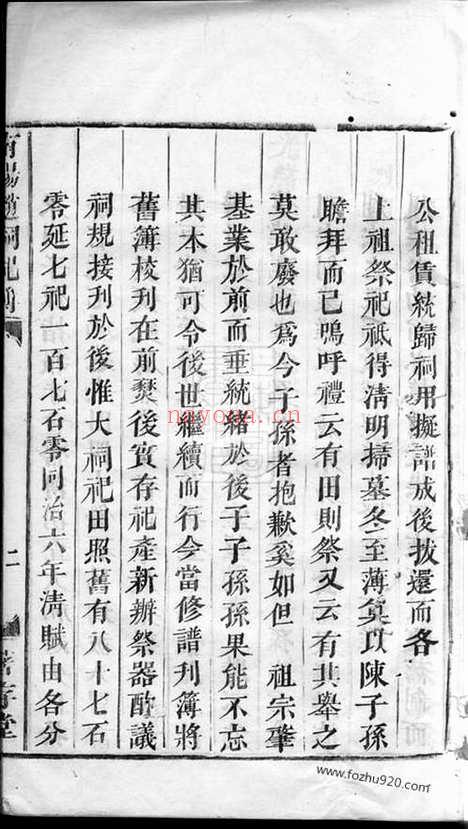 公租賃統歸祠用擬譜成後拔還而各
上祖祭祀祇得淸明掃墓冬至薄奠以陳子孫
瞻拜而已嗚呼禮云有田則祭又云有其舉之
莫敢廢也爲今子孫者抱歉奚如但 祖宗肇
基業於前而垂統緒於後子子孫孫果能不忘
其本猶可令後世繼續而行今當修譜刊簿將
舊簿校刊在前燹後實存祀產新辦祭器酌議
祠規接刊於後惟大祠祀田照舊有八十七石
零延七祀一百七石零同治六年淸賦由各分
二
nayona.cn
www.fozhu920.com